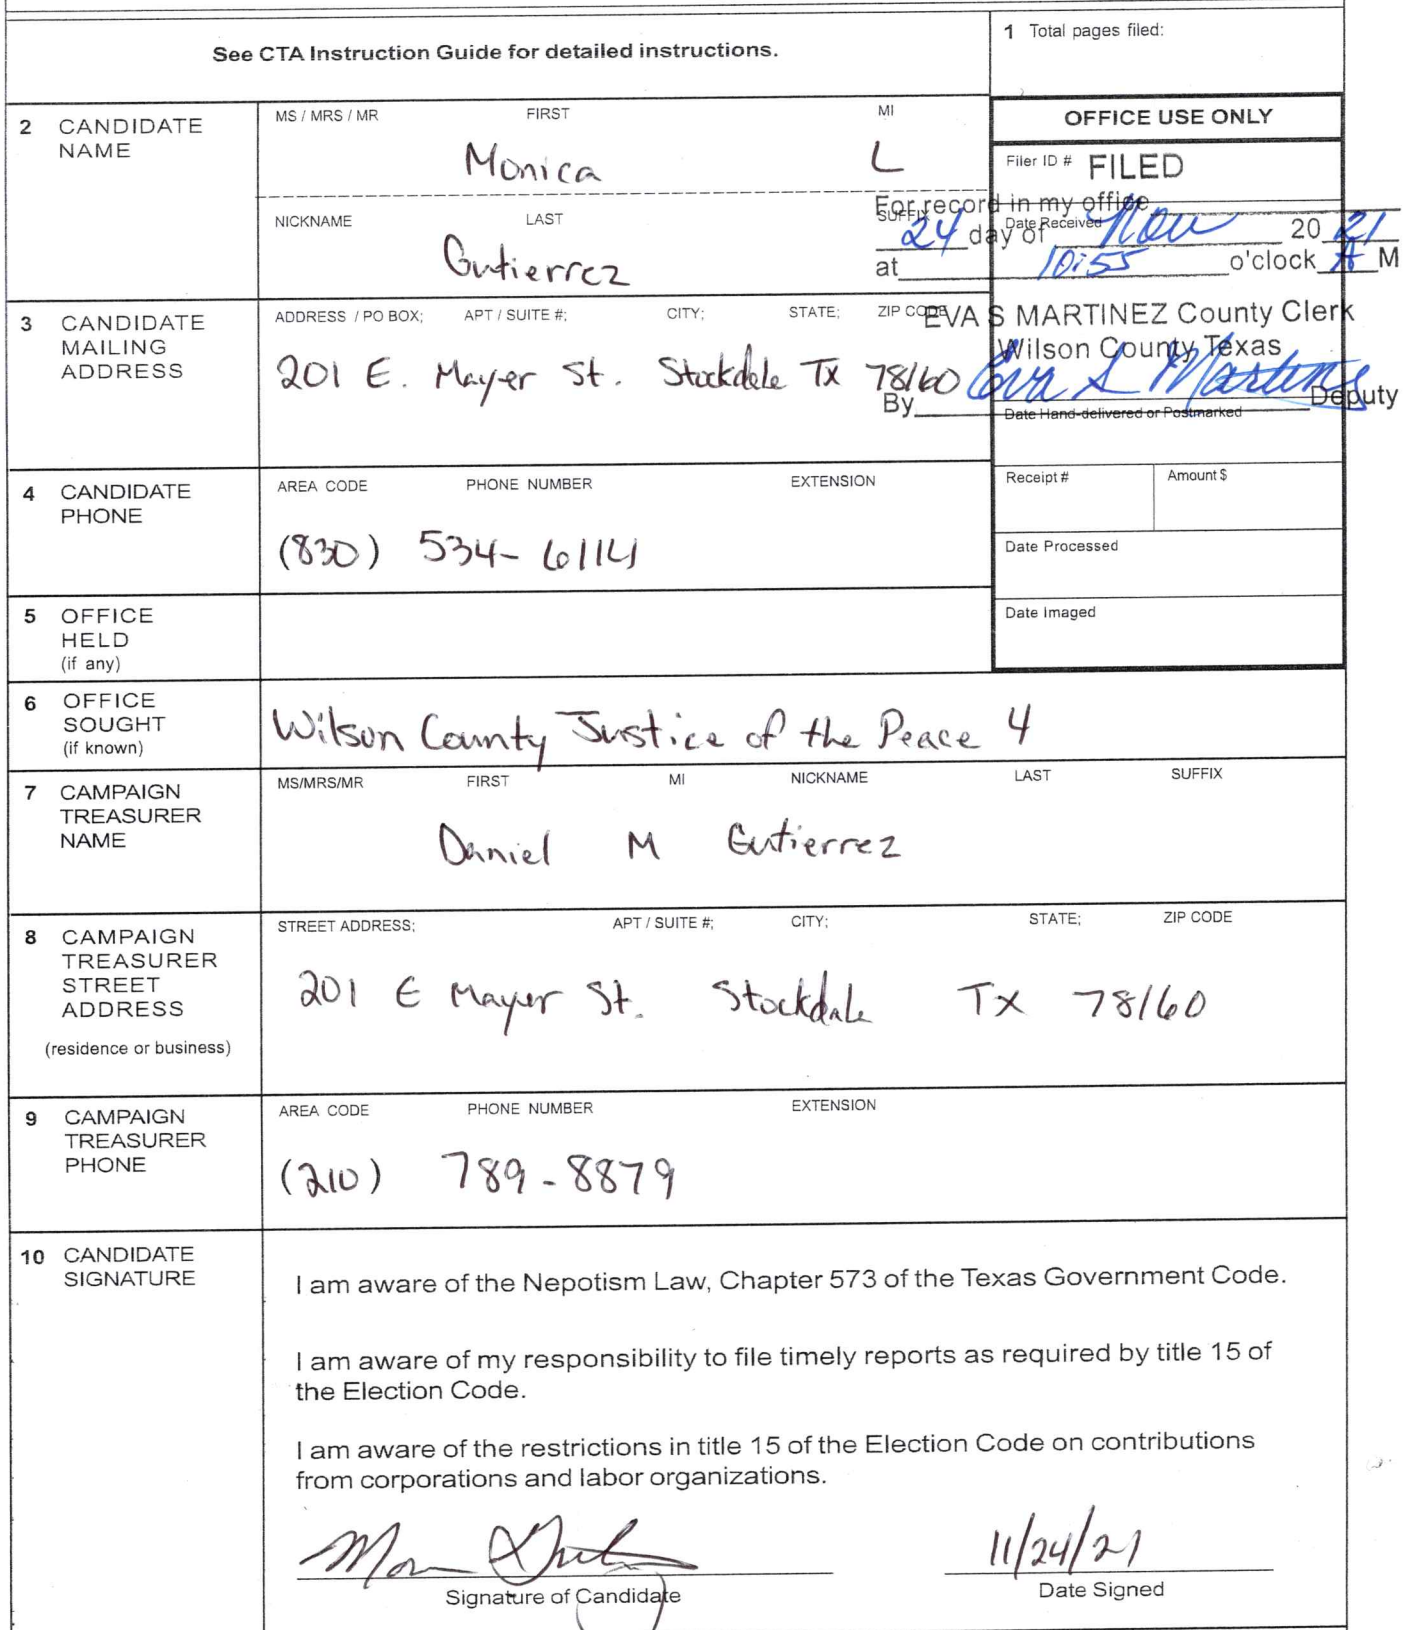 See CTA Instruction Guide for detailed instructions.
1 Total pages filed:
2 CANDIDATE NAME
MS / MRS / MR FIRST MI
Monica L
NICKNAME LAST SUFFIX
Gutierrez
OFFICE USE ONLY
Filer ID # FILED
For record in my office
Date Received
24 day of Nov 20 21
at 10:55 o'clock A M
EVA S MARTINEZ County Clerk
Wilson County Texas
By Eva S Martinez Deputy
Date Hand-delivered or Postmarked
Receipt # Amount $
Date Processed
Date Imaged
3 CANDIDATE MAILING ADDRESS
ADDRESS / PO BOX; APT / SUITE #; CITY; STATE; ZIP CODE
201 E. Mayer St. Stockdale Tx 78160
4 CANDIDATE PHONE
AREA CODE PHONE NUMBER EXTENSION
(830) 534-6114
5 OFFICE HELD (if any)
6 OFFICE SOUGHT (if known)
Wilson County Justice of the Peace 4
7 CAMPAIGN TREASURER NAME
MS/MRS/MR FIRST MI NICKNAME LAST SUFFIX
Daniel M Gutierrez
8 CAMPAIGN TREASURER STREET ADDRESS (residence or business)
STREET ADDRESS; APT / SUITE #; CITY; STATE; ZIP CODE
201 E Mayer St. Stockdale Tx 78160
9 CAMPAIGN TREASURER PHONE
AREA CODE PHONE NUMBER EXTENSION
(210) 789-8879
10 CANDIDATE SIGNATURE
I am aware of the Nepotism Law, Chapter 573 of the Texas Government Code.
I am aware of my responsibility to file timely reports as required by title 15 of
the Election Code.
I am aware of the restrictions in title 15 of the Election Code on contributions
from corporations and labor organizations.
11/24/21
Signature of Candidate Date Signed